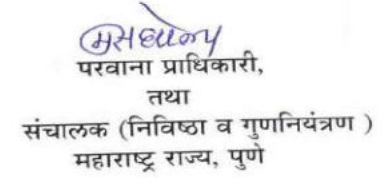 परवाना प्राधिकारी,
तथा
संचालक (निविष्ठा व गुणनियंत्रण )
महाराष्ट्र राज्य, पुणे